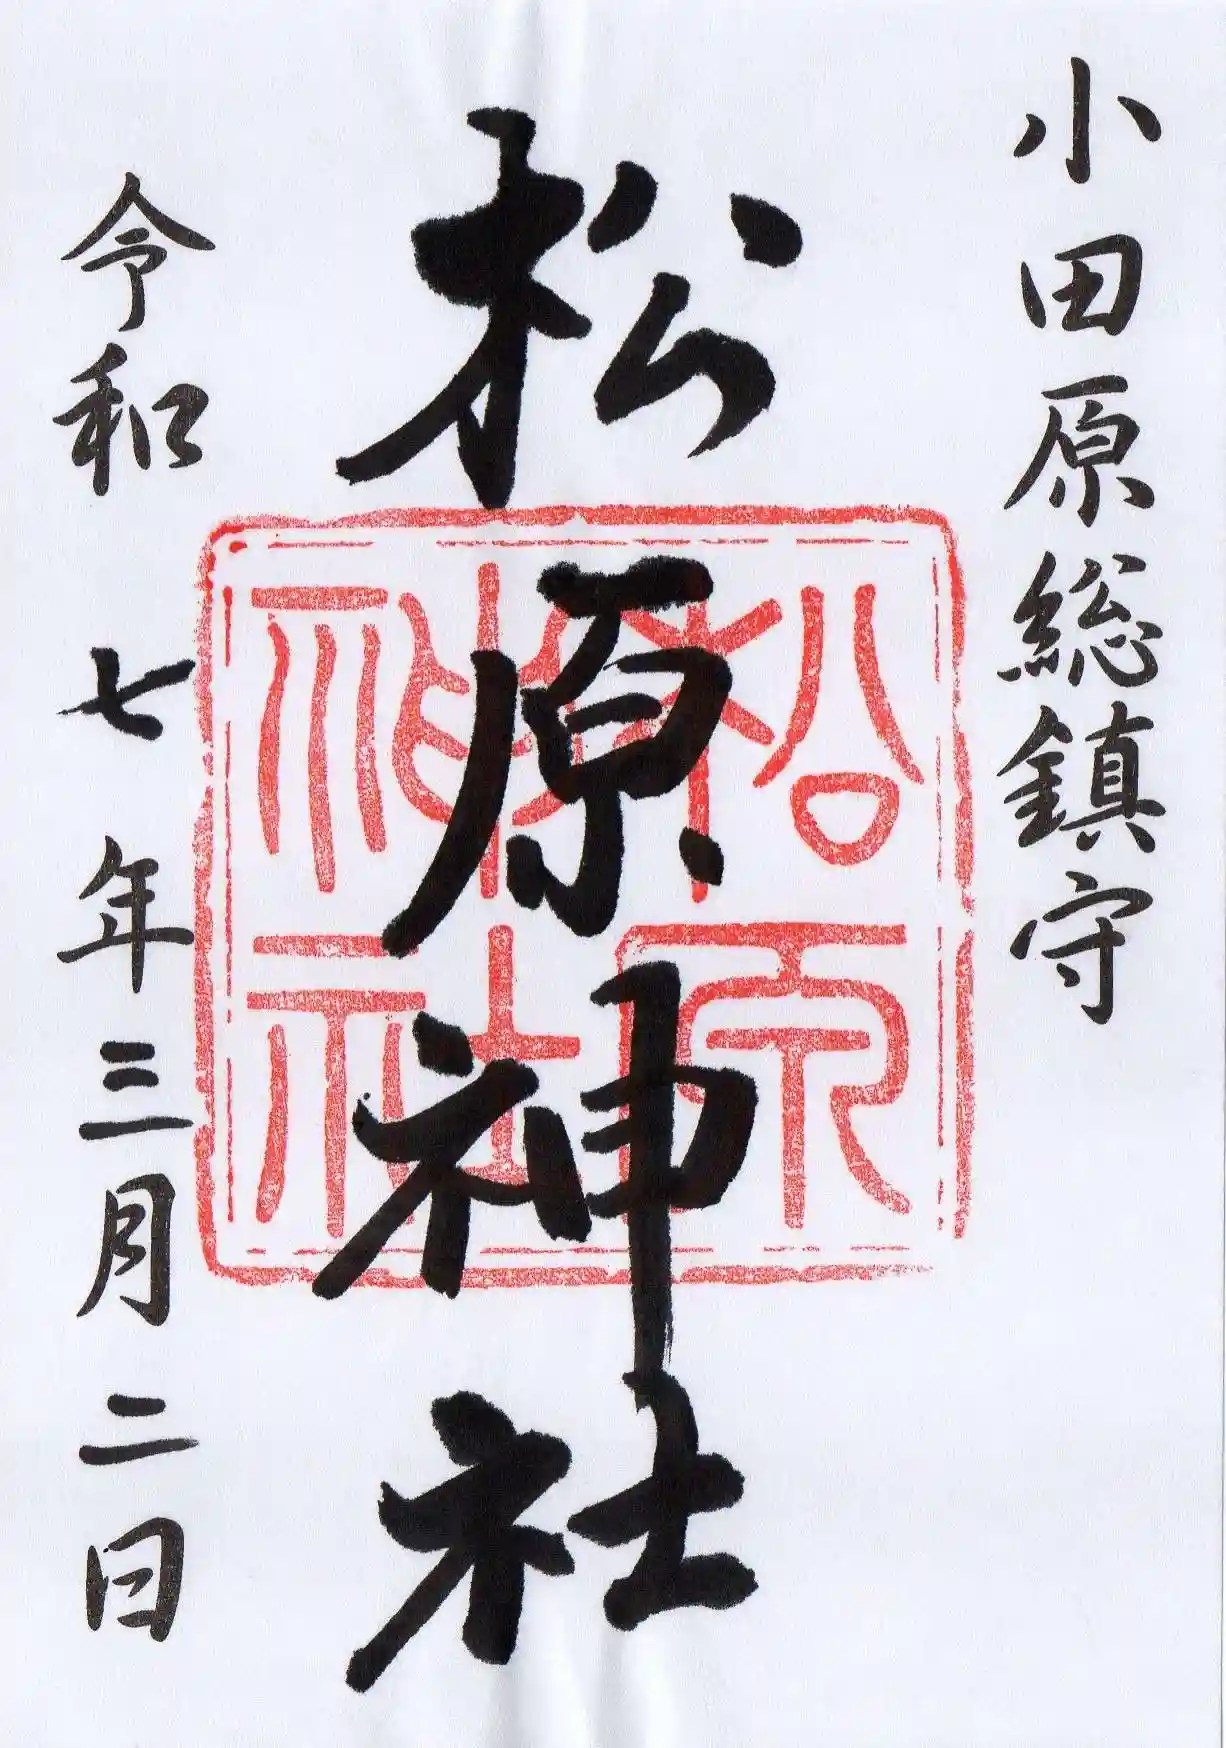 小田原総鎮守
松原神社
松原
神社
令和七年三月二日